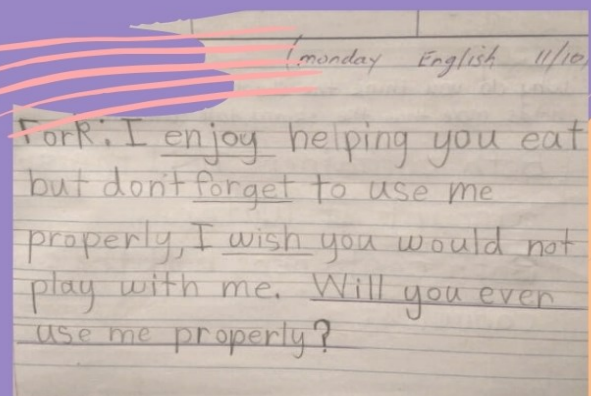 monday English 11/10
Fork: I enjoy helping you eat
but don't forget to use me
properly, I wish you would not
play with me. Will you ever
use me properly?